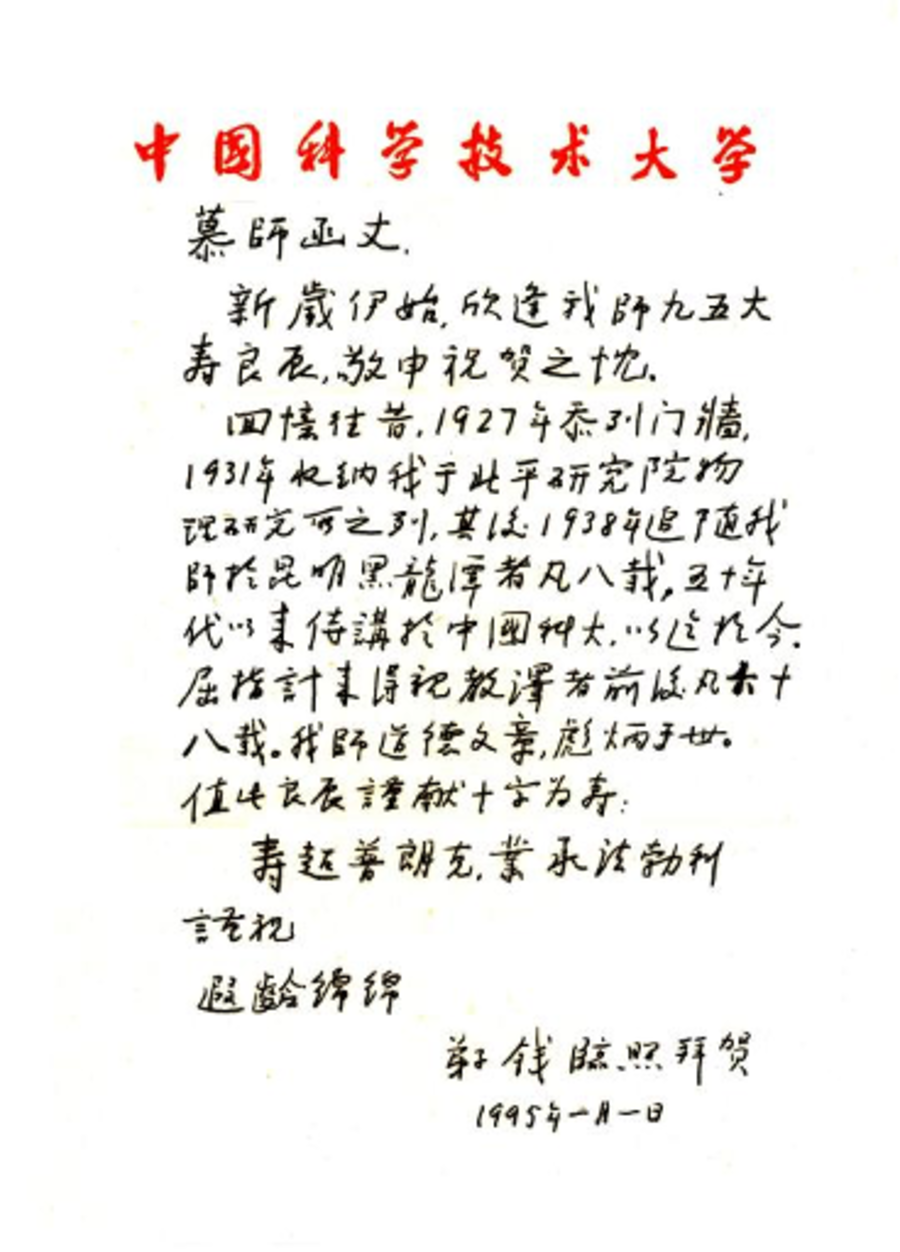 中国科学技术大学
慕師函丈.
新嵗伊始,欣逢我師九五大
寿良辰,敬申祝贺之忱.
回憶往昔,1927年忝列门牆,
1931年收纳我于北平研究院物
理研究所之列,其後1938年追随我
師於昆明黑龍潭者凡八載,五十年
代以来侍講於中國科大,以迄於今.
屈指計来得親教澤者前後凡六十
八載。我師道德文章,彪炳于世。
值此良辰謹献十字为寿:
寿超普朗克,業承法勃利
謹祝
遐齡綿綿
弟子钱臨照拜贺
1995年一月一日